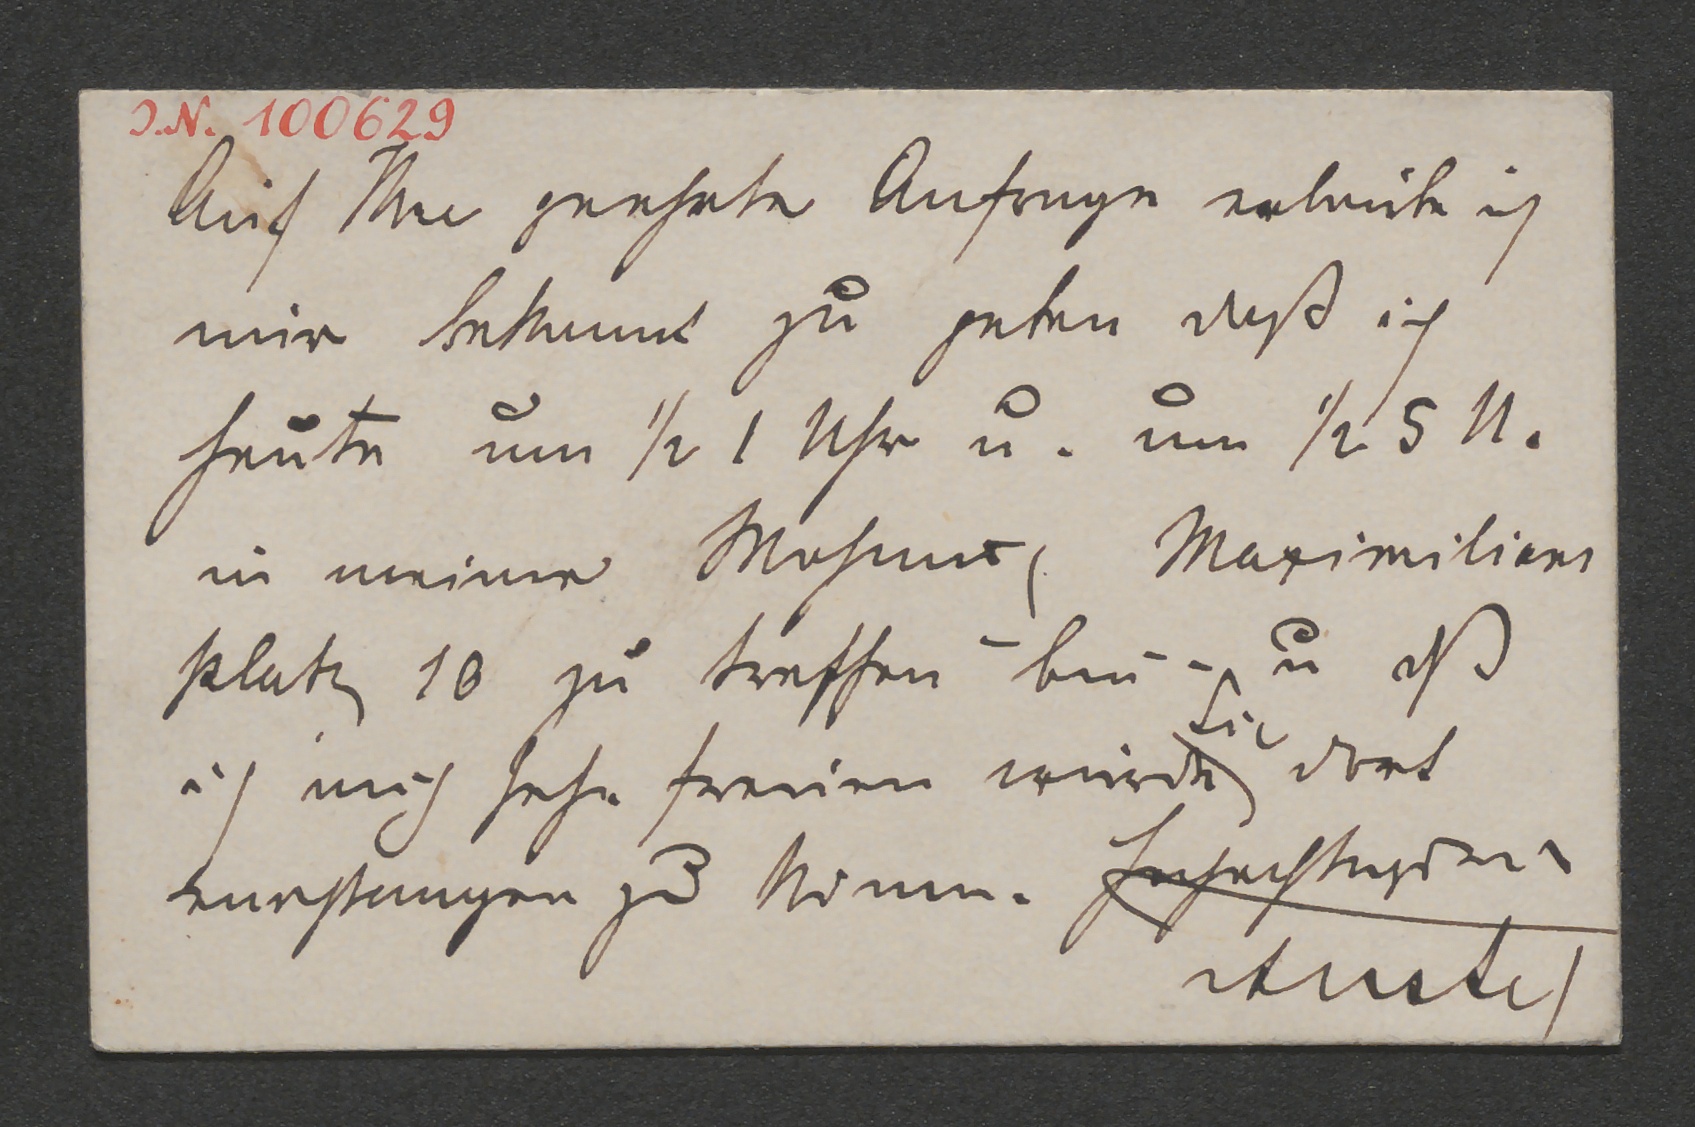 I.N. 100629
Auf Ihre geehrte Anfrage erlaube ich
mir bekannt zu geben daß ich
heute um ½ 1 Uhr u. um ½ 5 U.
in meiner Wohnung Maximilians
platz 10 zu treffen – bin – u dß
ich mich sehr freuen würde, Sie dort
empfangen zu können. Hochachtungsvoll